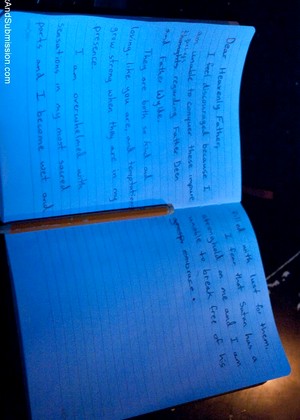 AndSubmission.com
Dear Heavenly Father,
I feel discouraged because I
am unable to conquer these impure
regarding Father Deen
and Father Wylde.
They are both so kind and
loving, like you are, and temptation
grow strong when they are in my
presence.
I am overwhelmed with
sensations in my most sacred
parts and I become wet and
with lust for them.
I fear that Satan has a
stronghold on me and I am
unable to break free of his
embrace.